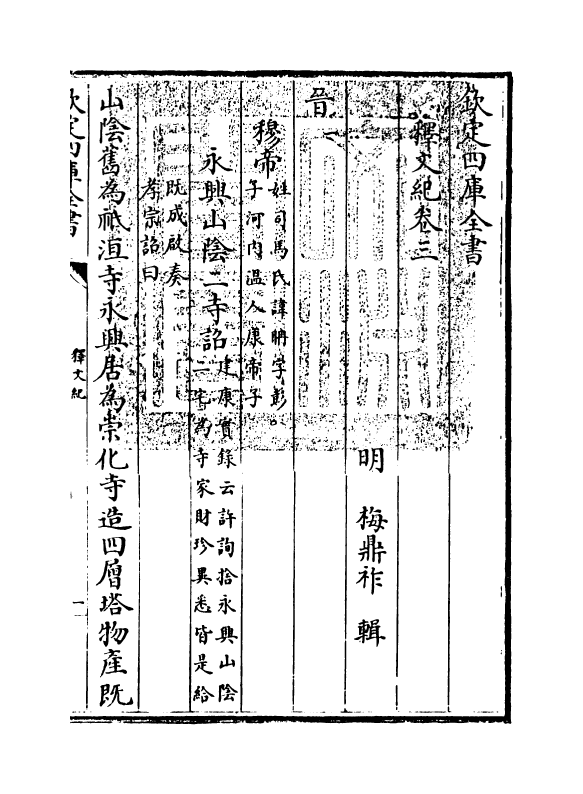 欽定四庫全書
釋文紀卷三
明 梅鼎祚 輯
晉
穆帝
姓司馬氏諱聃字彭
子河内溫人康帝子
永興山陰二寺詔
建康實錄云許詢捨永興山陰
二宅為寺家財珍異悉皆是給
既成啟奏
孝宗詔曰
山陰舊為祇洹寺永興居為崇化寺造四層塔物産既
欽定四庫全書
釋文紀
一